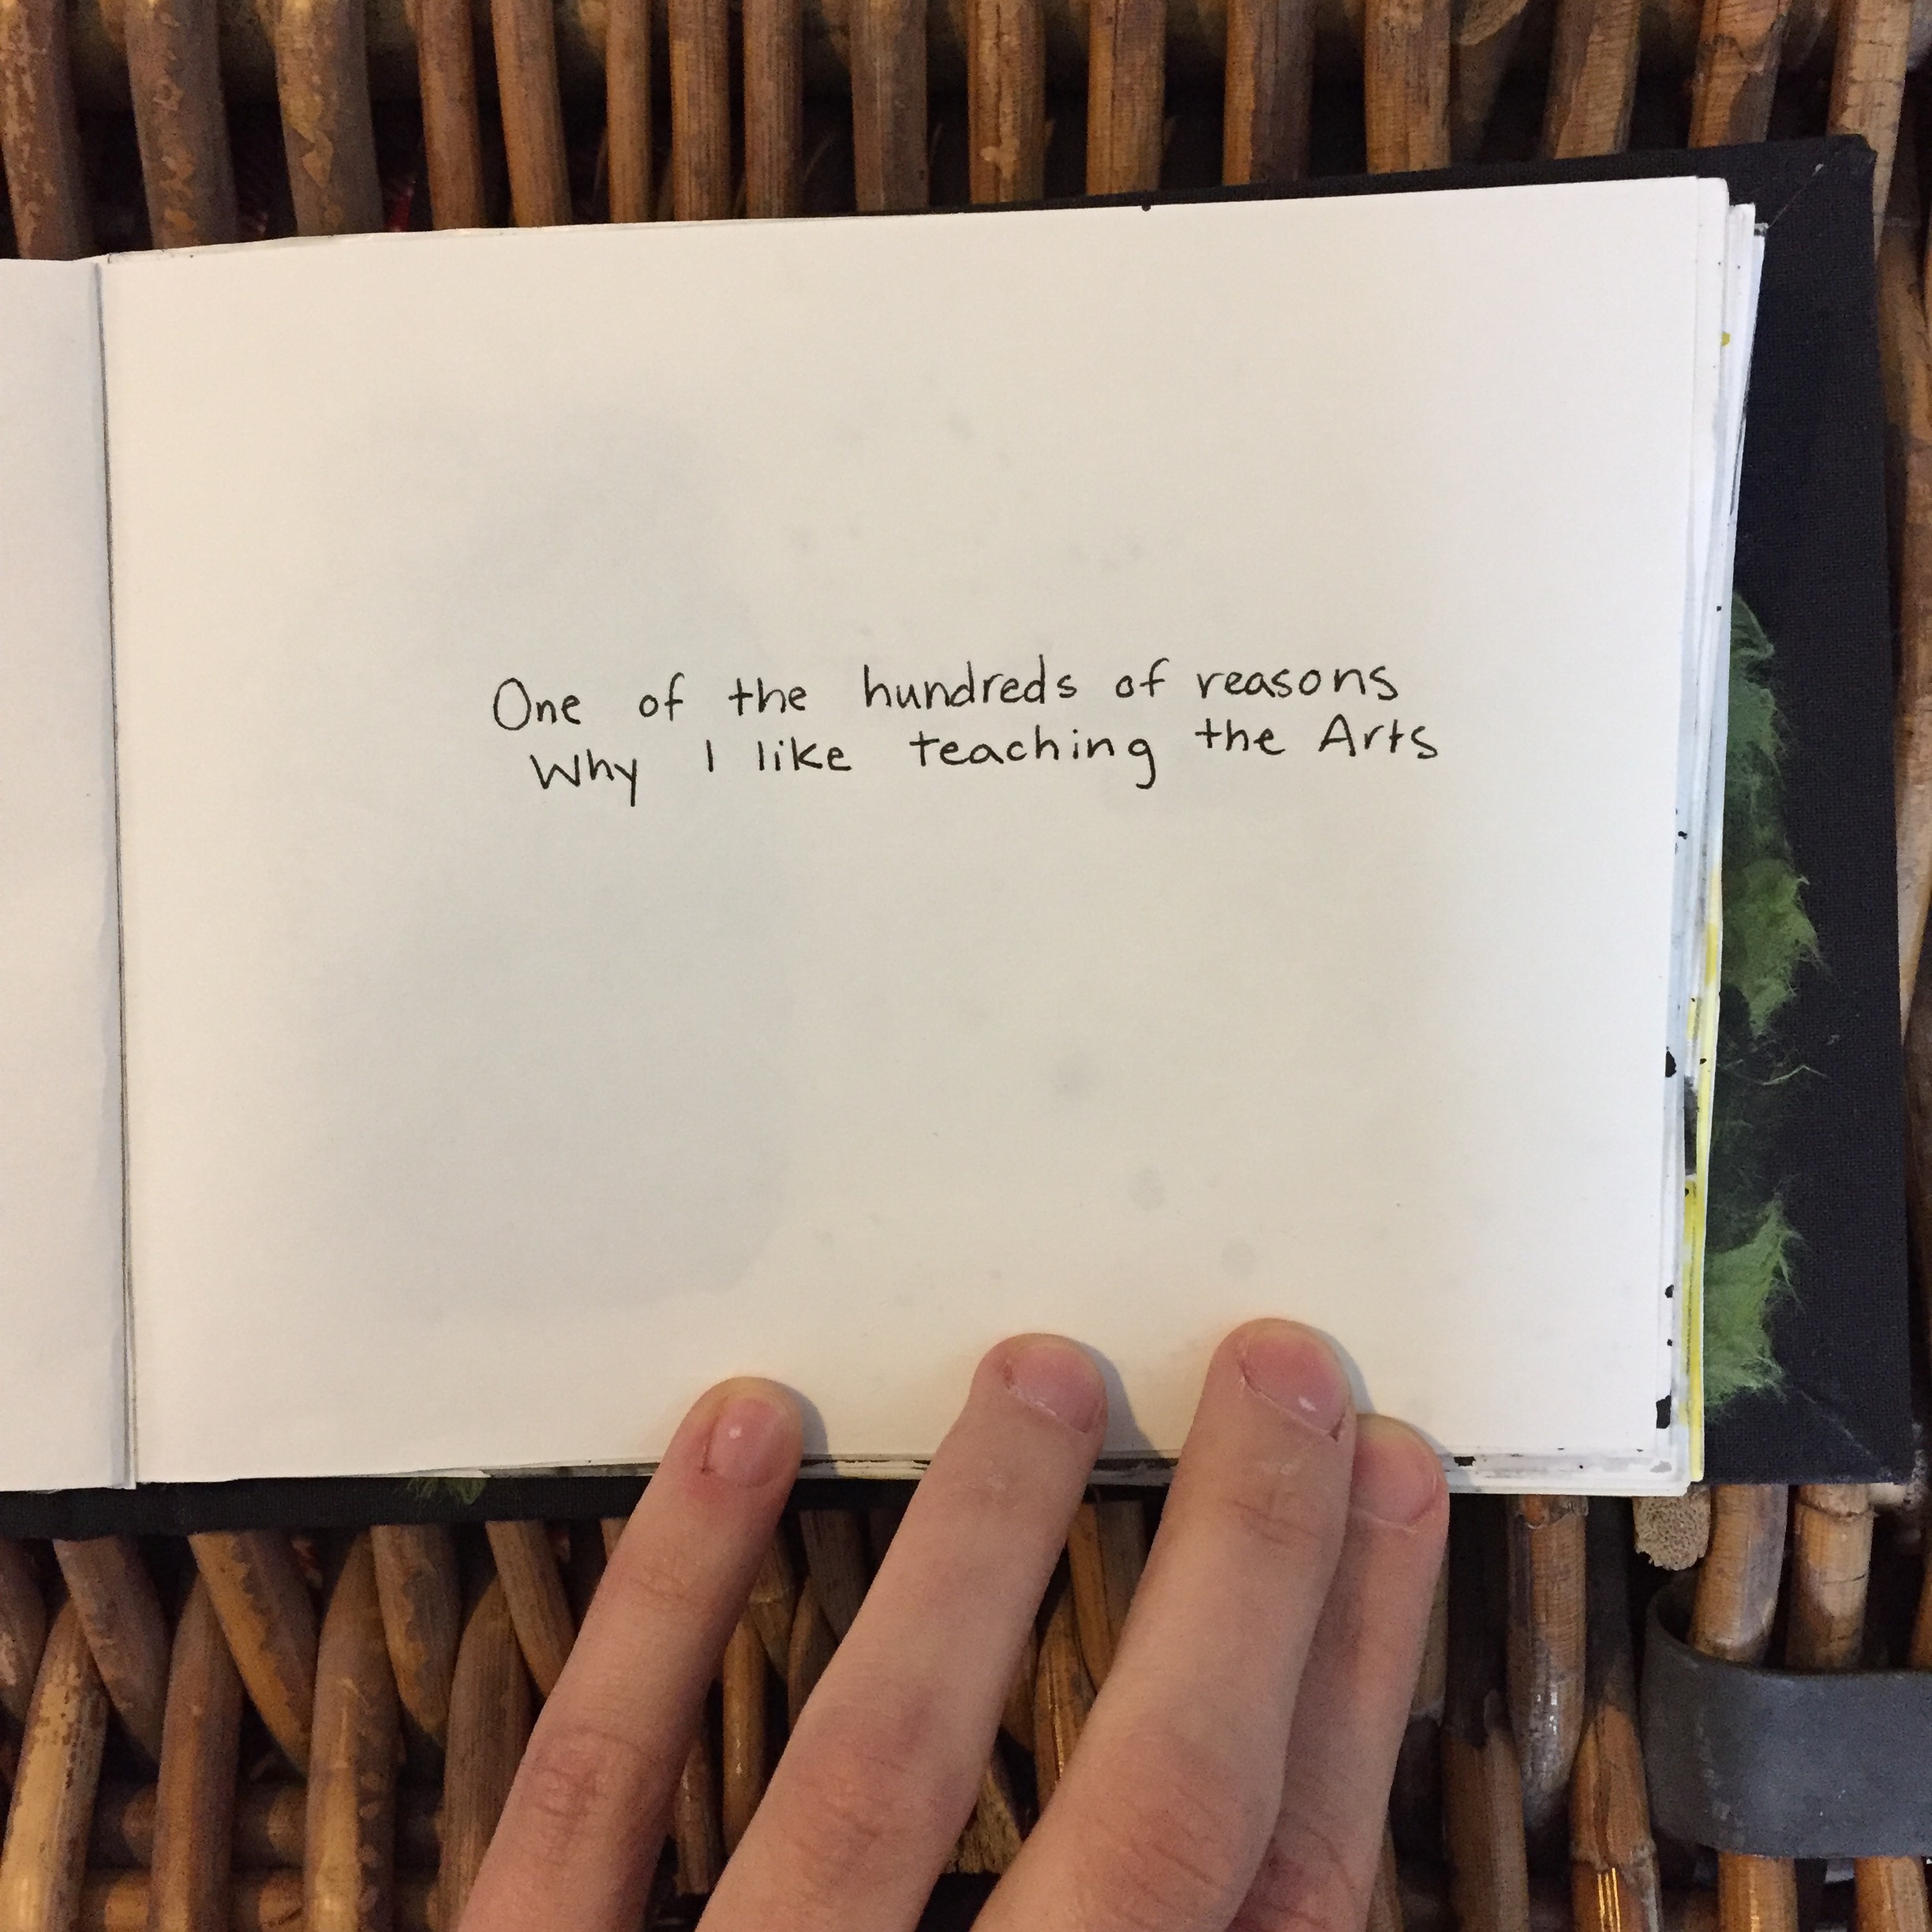 One of the hundreds of reasons
Why I like teaching the Arts